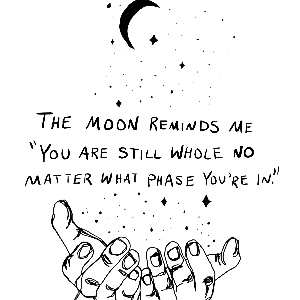 THE MOON REMINDS ME
"YOU ARE STILL WHOLE NO
MATTER WHAT PHASE YOU'RE IN."